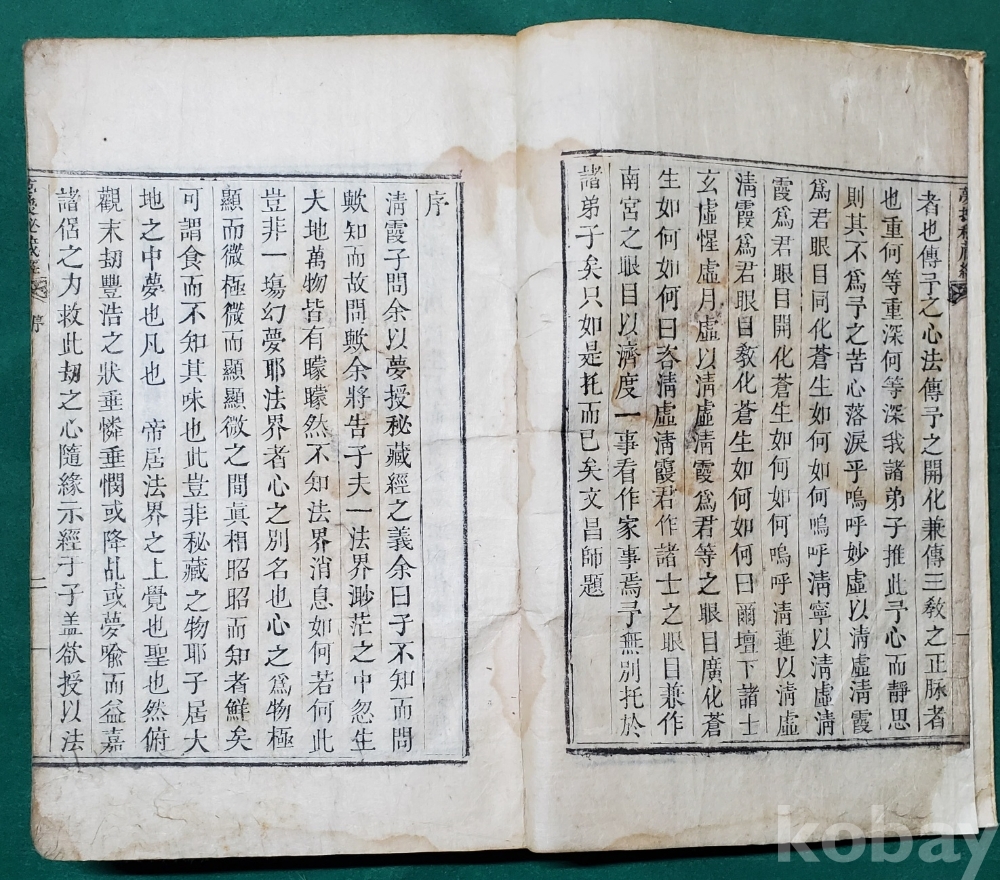 者也傳予之心法傳予之開化兼傳三敎之正脉者
也重何等重深何等深我諸弟子推此予心而靜思
則其不爲予之苦心落淚乎嗚呼妙虛以淸虛淸霞
爲君眼目同化蒼生如何如何嗚呼淸寧以淸虛淸
霞爲君眼目開化蒼生如何如何嗚呼淸蓮以淸虛
淸霞爲君眼目敎化蒼生如何如何曰爾壇下諸士
玄虛惺虛月虛以淸虛淸霞爲君等之眼目廣化蒼
生如何如何曰吝淸虛淸霞君作諸士之眼目兼作
南宮之眼目以濟度一事看作家事焉予無別托於
諸弟子矣只如是托而已矣文昌師題
序
淸霞子問余以夢授秘藏經之義余曰子不知而問
歟知而故問歟余將告子夫一法界渺茫之中忽生
大地萬物皆有矇矇然不知法界消息如何若何此
豈非一塲幻夢耶法界者心之別名也心之爲物極
顯而微極微而顯顯微之間眞相昭昭而知者鮮矣
可謂食而不知其味也此豈非秘藏之物耶子居大
地之中夢也凡也 帝居法界之上覺也聖也然俯
觀末刼豐浩之狀垂憐垂憫或降乩或夢喩而益嘉
諸侶之力救此刼之心隨緣示經于子盖欲授以法
序
二
kobay